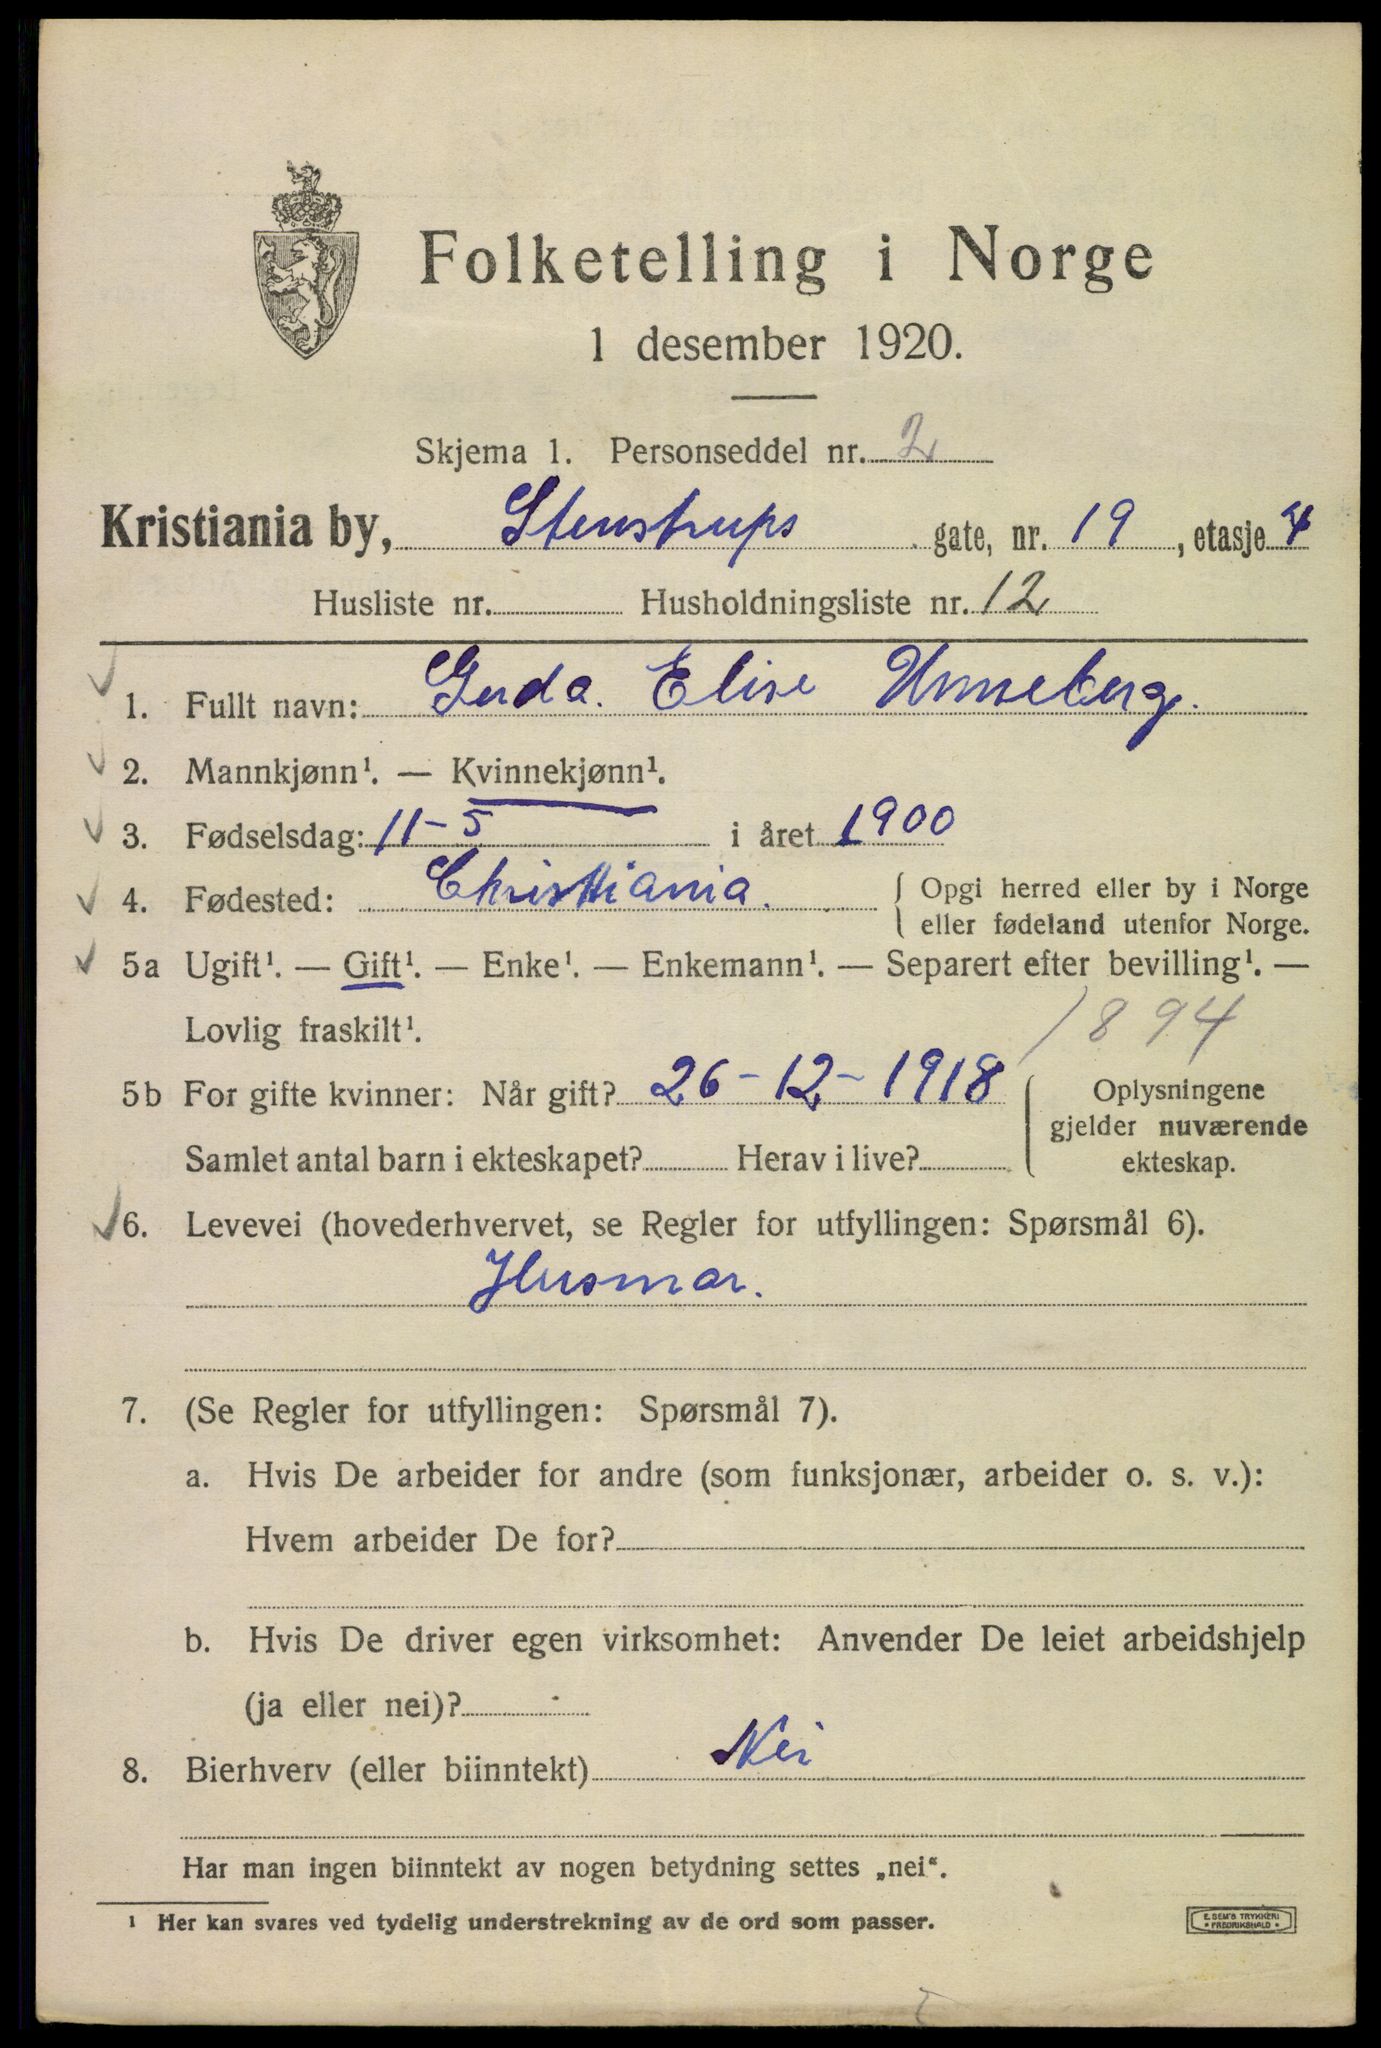 Folketelling i Norge
1 desember 1920.
Skjema 1. Personseddel nr. 2
Kristiania by, Stenstrups gate, nr. 19, etasje 4
Husliste nr. Husholdningsliste nr. 12
1. Fullt navn: Gerda. Elise Unneberg.
2. Mannkjønn¹. — Kvinnekjønn¹.
3. Fødselsdag: 11-5 i året 1900
4. Fødested: Christiania. { Opgi herred eller by i Norge
eller fødeland utenfor Norge.
5a Ugift¹. — Gift¹. — Enke¹. — Enkemann¹. — Separert efter bevilling¹. —
Lovlig fraskilt¹. 1894
5b For gifte kvinner: Når gift? 26-12-1918 { Oplysningene
gjelder nuværende
Samlet antal barn i ekteskapet? Herav i live? ekteskap.
6. Levevei (hovederhvervet, se Regler for utfyllingen: Spørsmål 6).
Husmor.
7. (Se Regler for utfyllingen: Spørsmål 7).
a. Hvis De arbeider for andre (som funksjonær, arbeider o. s. v.):
Hvem arbeider De for?
b. Hvis De driver egen virksomhet: Anvender De leiet arbeidshjelp
(ja eller nei)?
8. Bierhverv (eller biinntekt) Nei
Har man ingen biinntekt av nogen betydning settes „nei“.
¹ Her kan svares ved tydelig understrekning av de ord som passer.
E. SEM'S TRYKKERI
• FREDRIKSHALD •